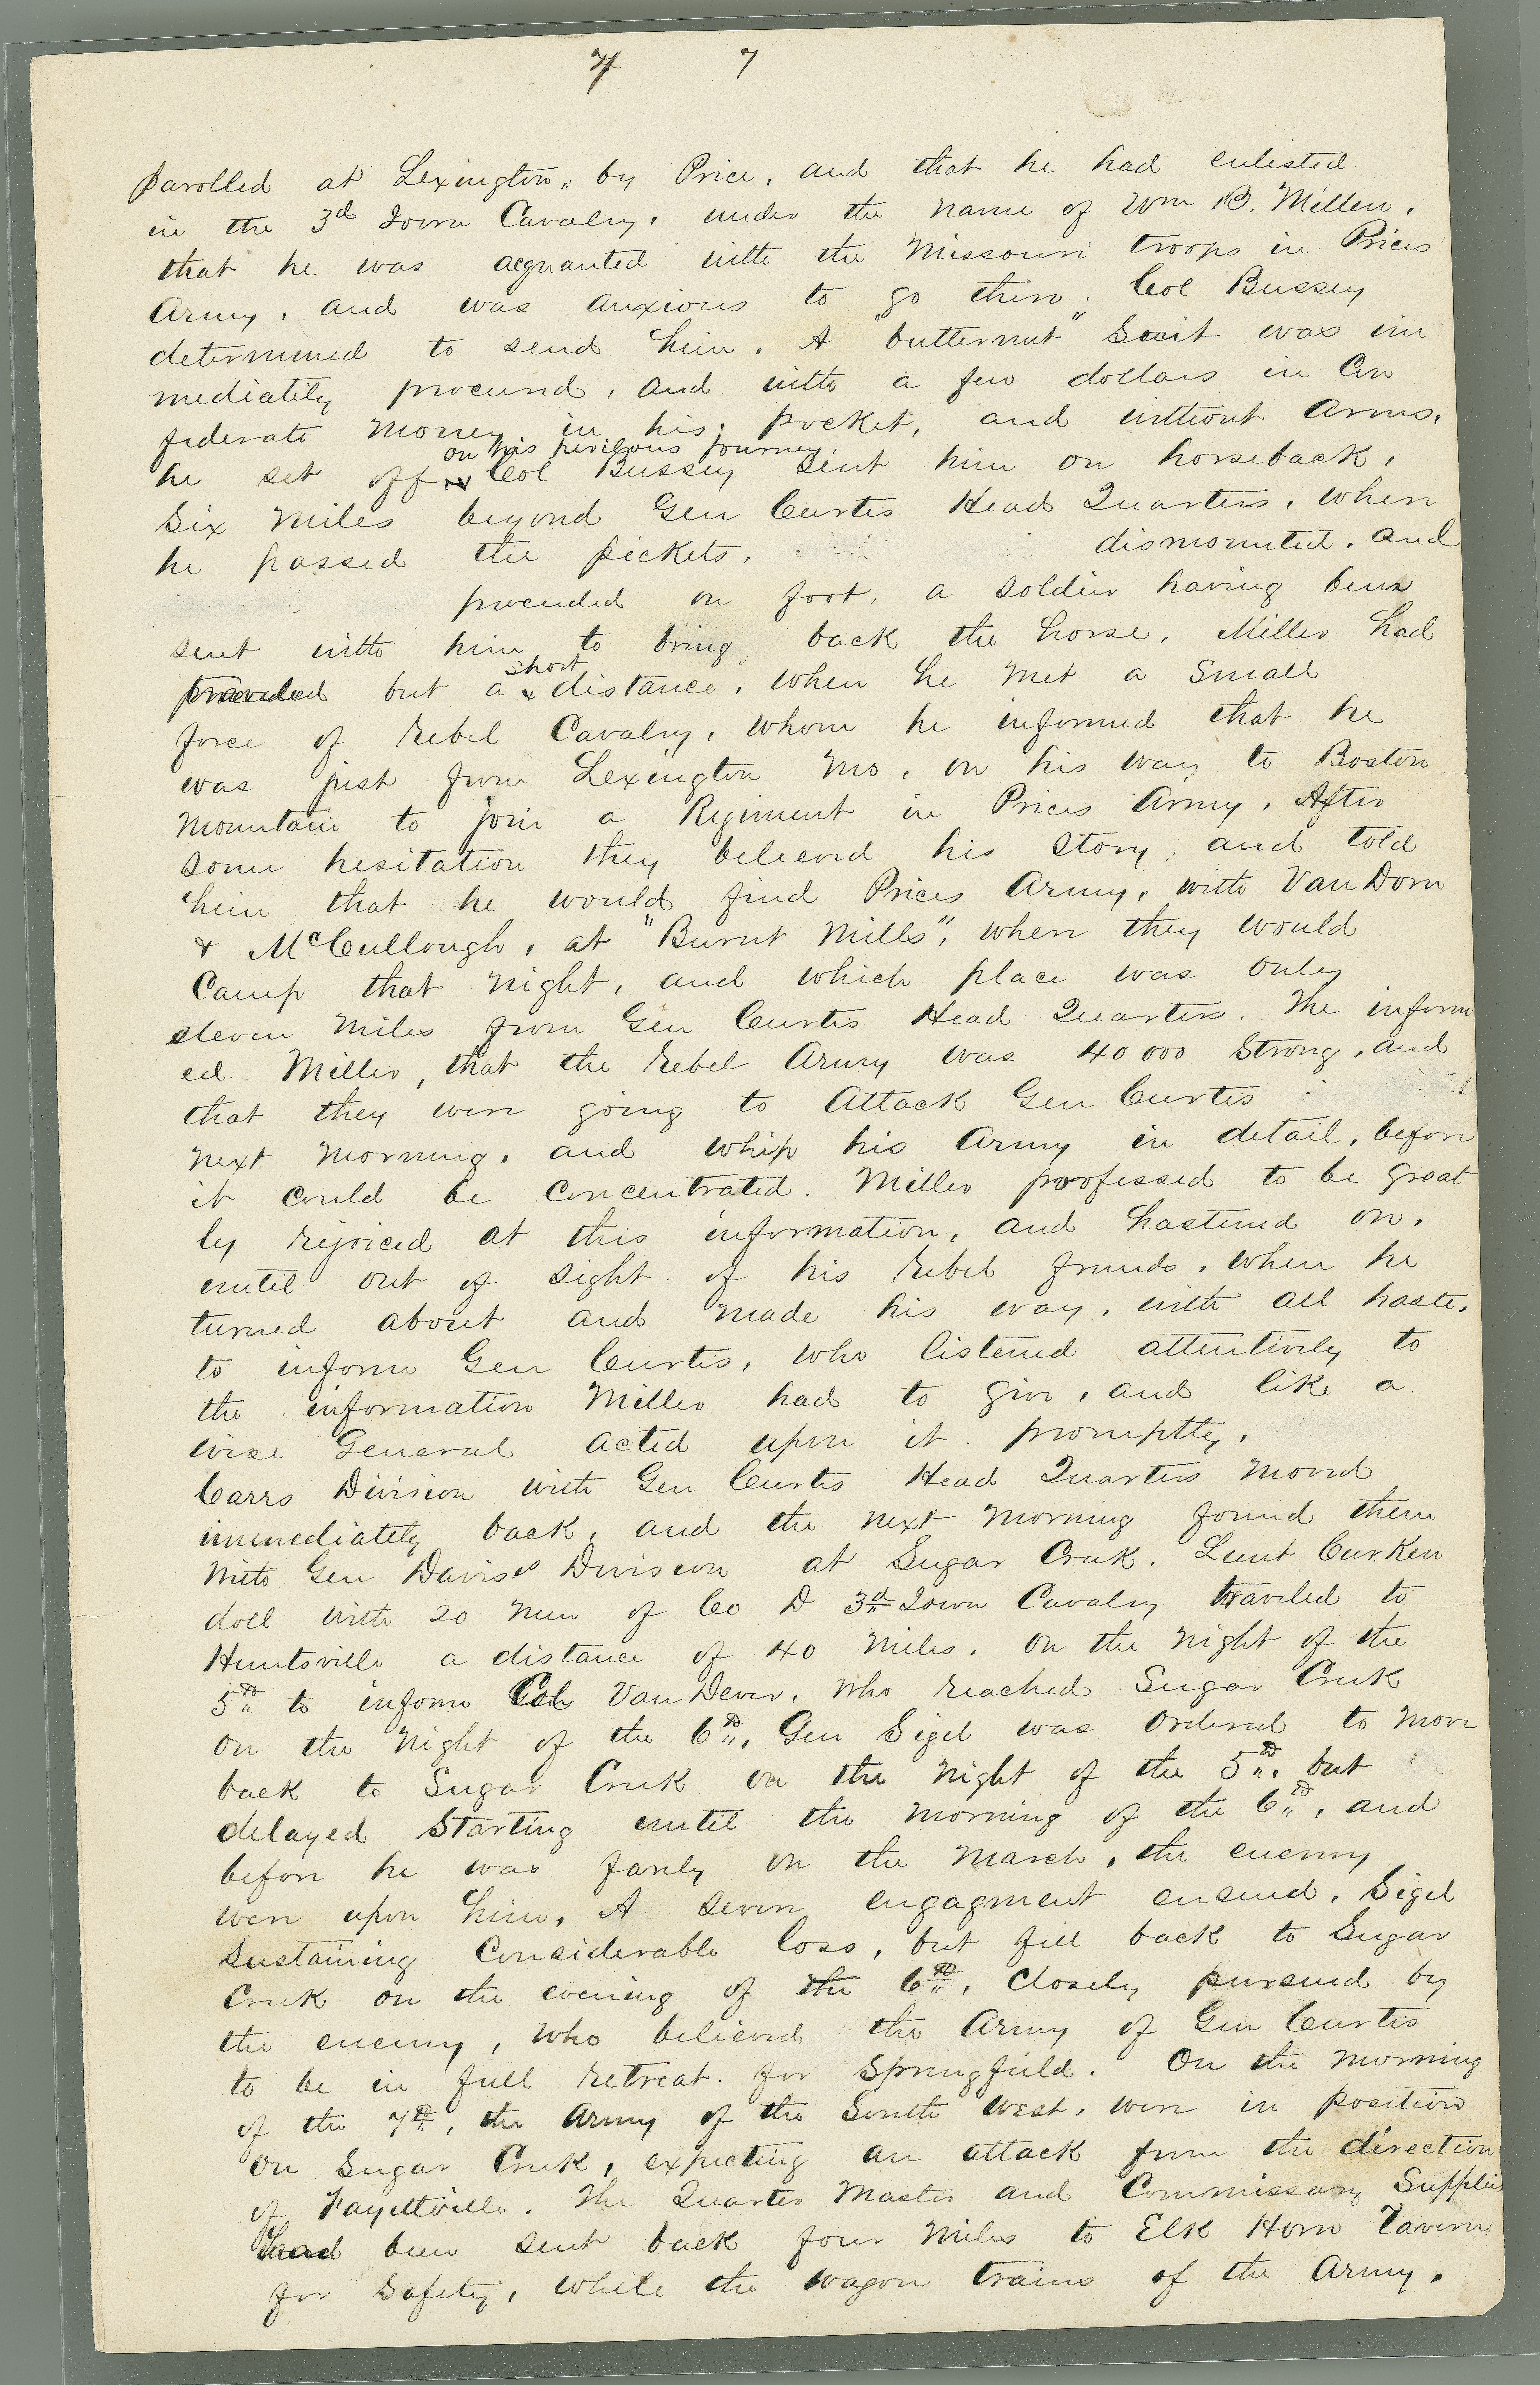 7 7
parolled at Lexington, by Price, and that he had enlisted
in the 3d Iowa Cavalry, under the name of Wm B. Miller,
that he was acquanted with the Missouri troops in Prices
Army, and was anxious to go then. Col Bussey
determined to send him. A "butternut" Suit was im
mediately procured, and with a few dollars in Con
federate money in his pocket, and without arms,
on his perilous journey
he set off Col Bussey sent him on horseback,
Six miles beyond Gen Curtis Head Quarters, when
he passed the pickets, dismounted, and
proceeded on foot, a soldier having been
sent with him to bring back the horse, Miller had
short
traveled but a x distance, when he met a small
force of rebel Cavalry, whom he informed that he
was just from Lexington Mo, on his way to Boston
Mountain to join a Regiment in Prices Army. After
some hesitation they believed his story, and told
him that he would find Prices Army, with Van Dorn
& McCullough, at "Burnt Mills", when they would
Camp that night, and which place was only
eleven miles from Gen Curtis Head Quarters. The inform
ed Miller, that the rebel Army was 40000 strong, and
that they were going to Attack Gen Curtis
next morning, and whip his Army in detail, before
it could be concentrated. Miller professed to be great
ly rejoiced at this information, and hastened on,
until out of sight of his rebel friends, when he
turned about and made his way, with all haste,
to inform Gen Curtis, who listened attentively to
the information Miller had to give, and like a
wise General acted upon it promptly,
Carrs Division with Gen Curtis Head Quarters moved
immediately back, and the next morning found them
with Gen Davis's Division at Sugar Creek. Lieut Curken
doll with 20 men of Co D 3d Iowa Cavalry traveled to
Huntsville a distance of 40 miles, on the night of the
5th to inform Col VanDever, who reached Sugar Creek
on the night of the 6th, Gen Sigel was ordered to move
back to Sugar Creek on the night of the 5th, but
delayed starting until the morning of the 6th, and
before he was farely on the march, the enemy
were upon him, A severe engagment ensued, Sigel
sustaining considerable loss, but fell back to Sugar
Creek on the evening of the 6th, closely pursued by
the enemy, who believed the Army of Gen Curtis
to be in full retreat for Springfield. On the morning
of the 7th, the Army of the South West, were in position
on Sugar Creek, expecting an attack from the direction
of Fayettville. The Quarter Master and Commissary Supplies
had been sent back four miles to Elk Horn Tavern
for safety, while the wagon trains of the Army,